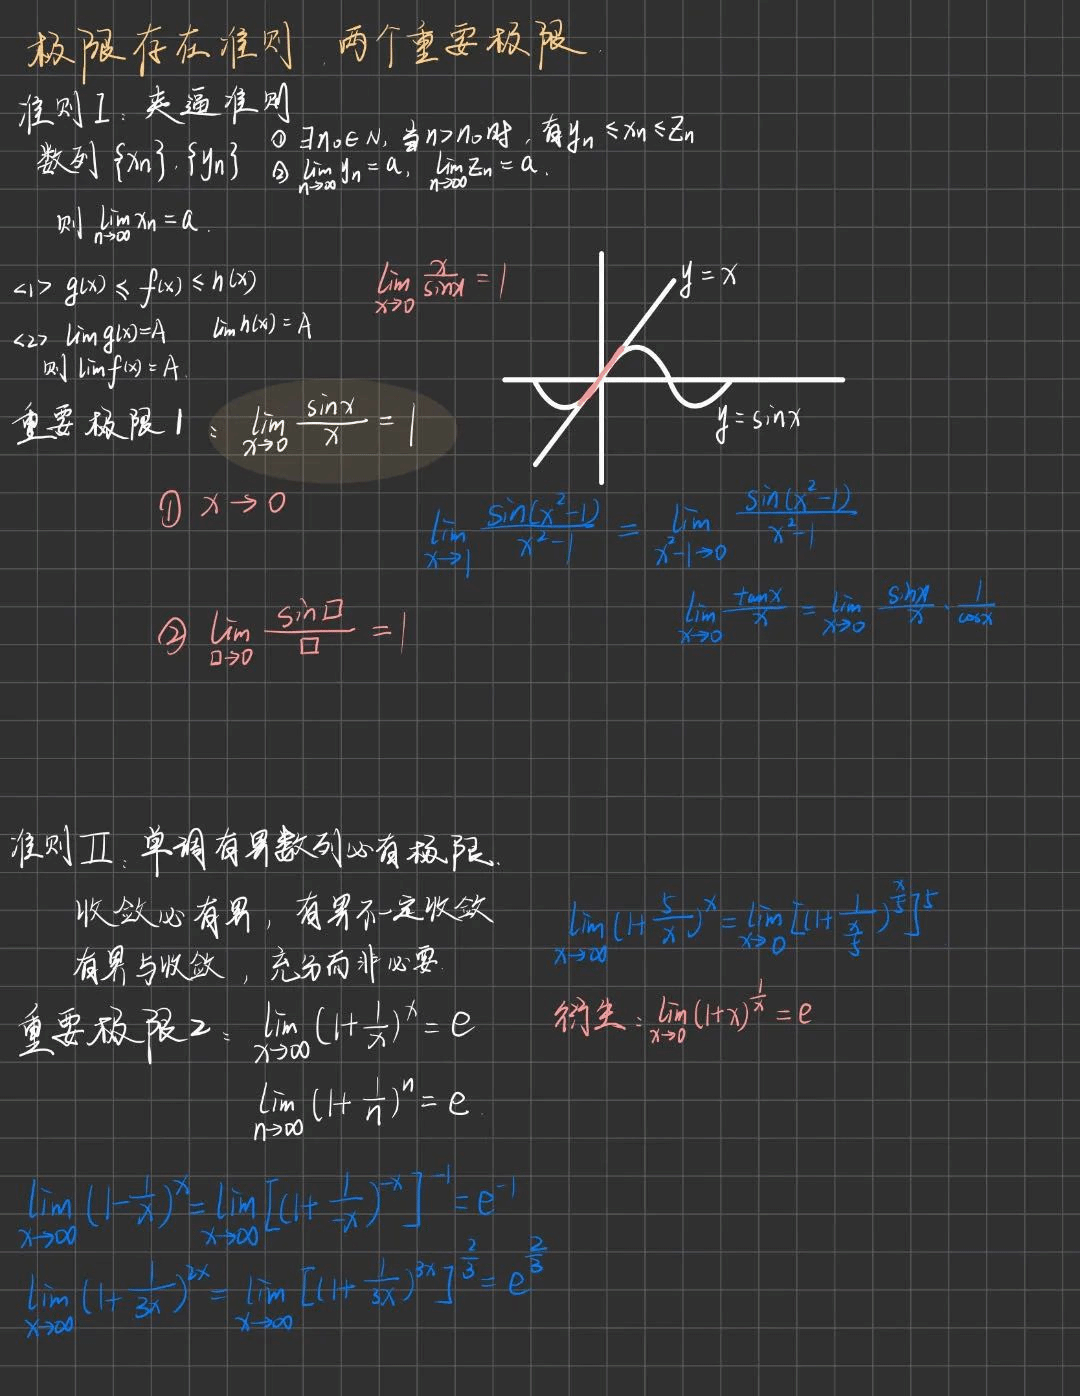 极限存在准则.两个重要极限.
准则I:夹逼准则
数列{xn}.{yn} ① ∃n₀∈N,当n>n₀时,有yn≤xn≤Zn
② lim n→∞ yn=a, lim n→∞ Zn=a.
则 lim n→∞ xn=a.
<1> g(x)≤f(x)≤h(x)
<2> lim g(x)=A lim h(x)=A
则 lim f(x)=A.
lim x→0 x/sinx=1
y=x
y=sinx
重要极限1: lim x→0 sinx/x=1
① x→0
lim x→1 sin(x²-1)/x²-1 = lim x²-1→0 sin(x²-1)/x²-1
lim x→0 tanx/x = lim x→0 sinx/x · 1/cosx
② lim □→0 sin□/□=1
准则II:单调有界数列必有极限.
收敛必有界,有界不一定收敛
有界与收敛,充分而非必要.
lim x→∞ (1+5/x)^x = lim x→0 [(1+1/(x/5))^(x/5)]^5
重要极限2: lim x→∞ (1+1/x)^x=e
衍生: lim x→0 (1+x)^(1/x)=e
lim n→∞ (1+1/n)^n=e.
lim x→∞ (1-1/x)^x = lim x→∞ [(1+1/-x)^-x]^-1 = e^-1
lim x→∞ (1+1/3x)^2x = lim x→∞ [(1+1/3x)^3x]^(2/3) = e^(2/3)